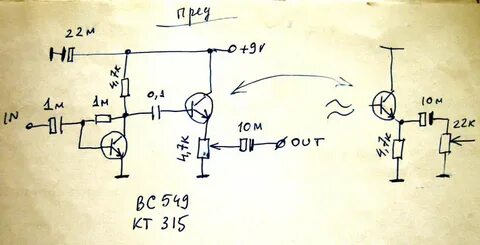 Пред
22м
+9v
4,7к
0,1
1м
1м
IN
10м
OUT
4,7к
≈
10м
4,7к
22к
BC 549
КТ 315